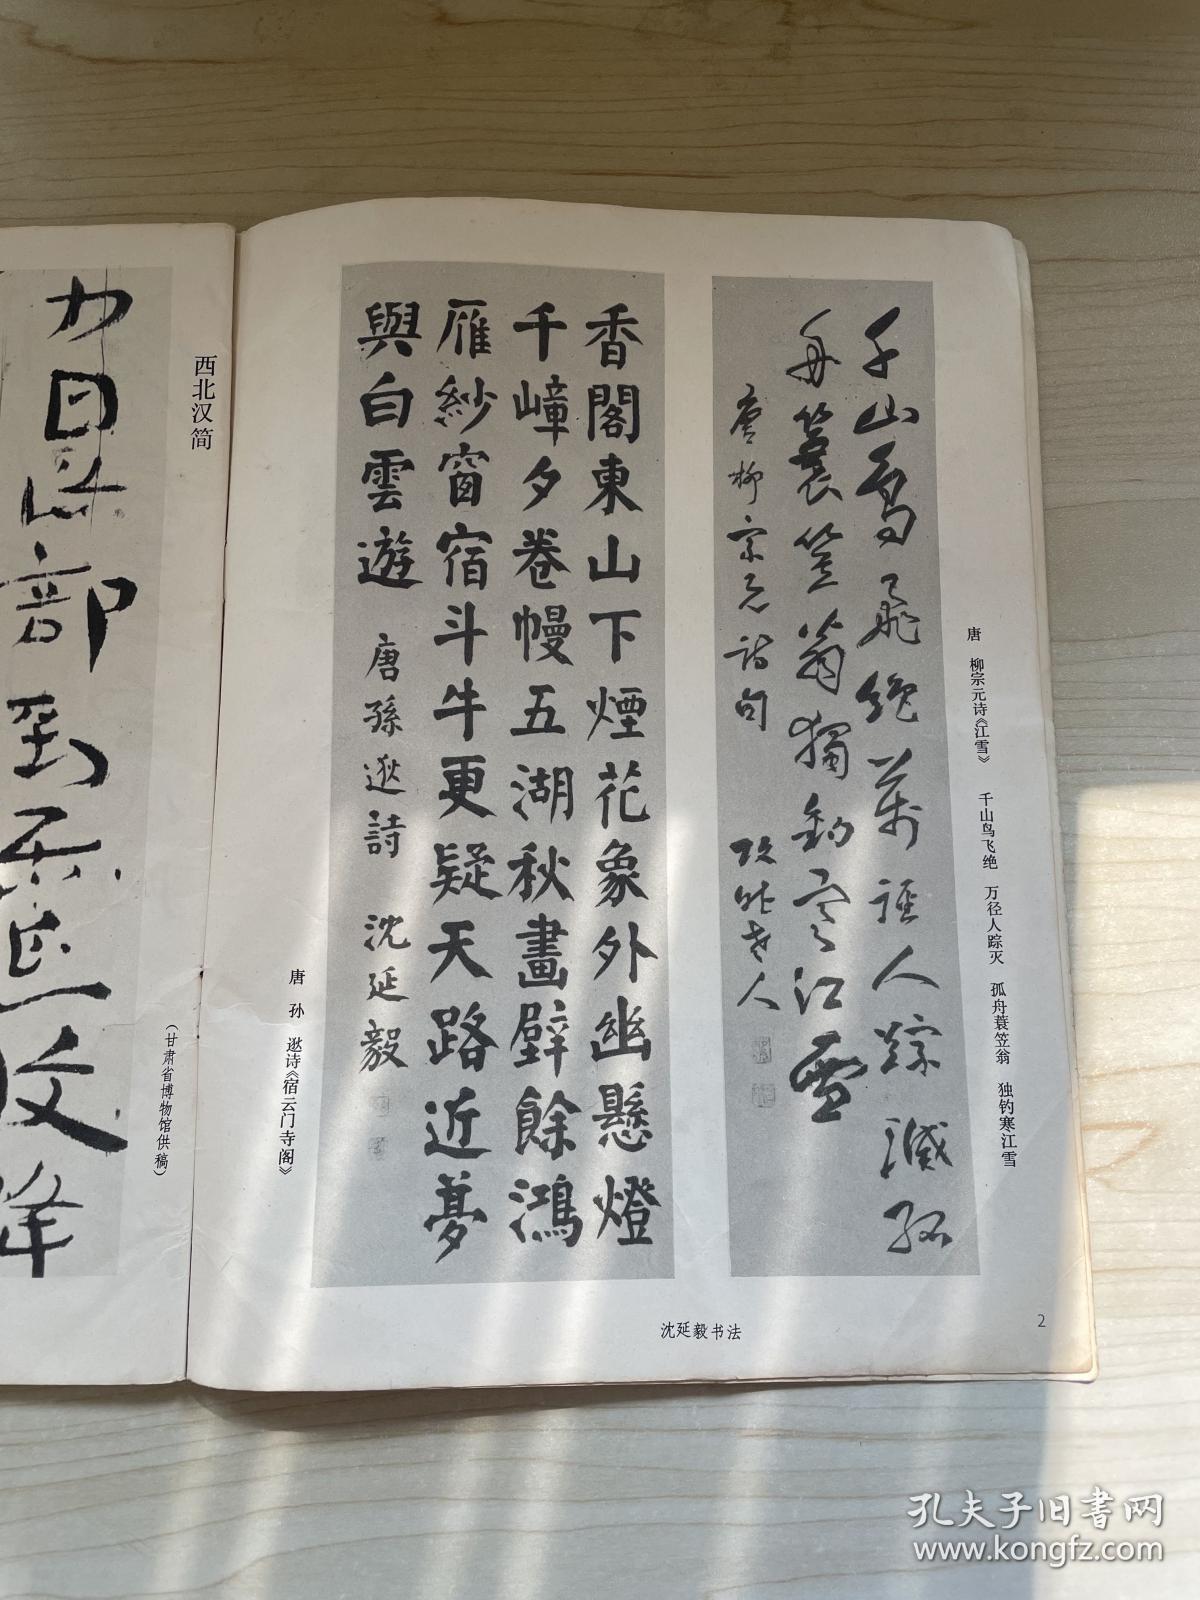 千山鳥飛絶萬徑人踪滅孤
舟簑笠翁獨釣寒江雪
唐柳宗元詩句
唐 柳宗元诗《江雪》 千山鸟飞绝 万径人踪灭 孤舟蓑笠翁 独钓寒江雪
香閣東山下煙花象外幽懸燈
千嶂夕卷幔五湖秋畫壁餘鴻
雁紗窗宿斗牛更疑天路近夢
與白雲遊 唐孫逖詩 沈延毅
唐 孙 逖诗《宿云门寺阁》
沈延毅书法
2
西北汉简
(甘肃省博物馆供稿)
孔夫子旧书网
www.kongfz.com